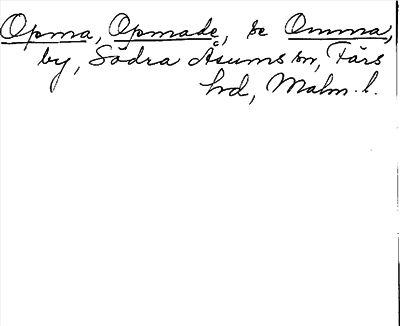 Opma, Opmade, se Omma,
by, Södra Åsums sn, Färs
hd, Malm. l.